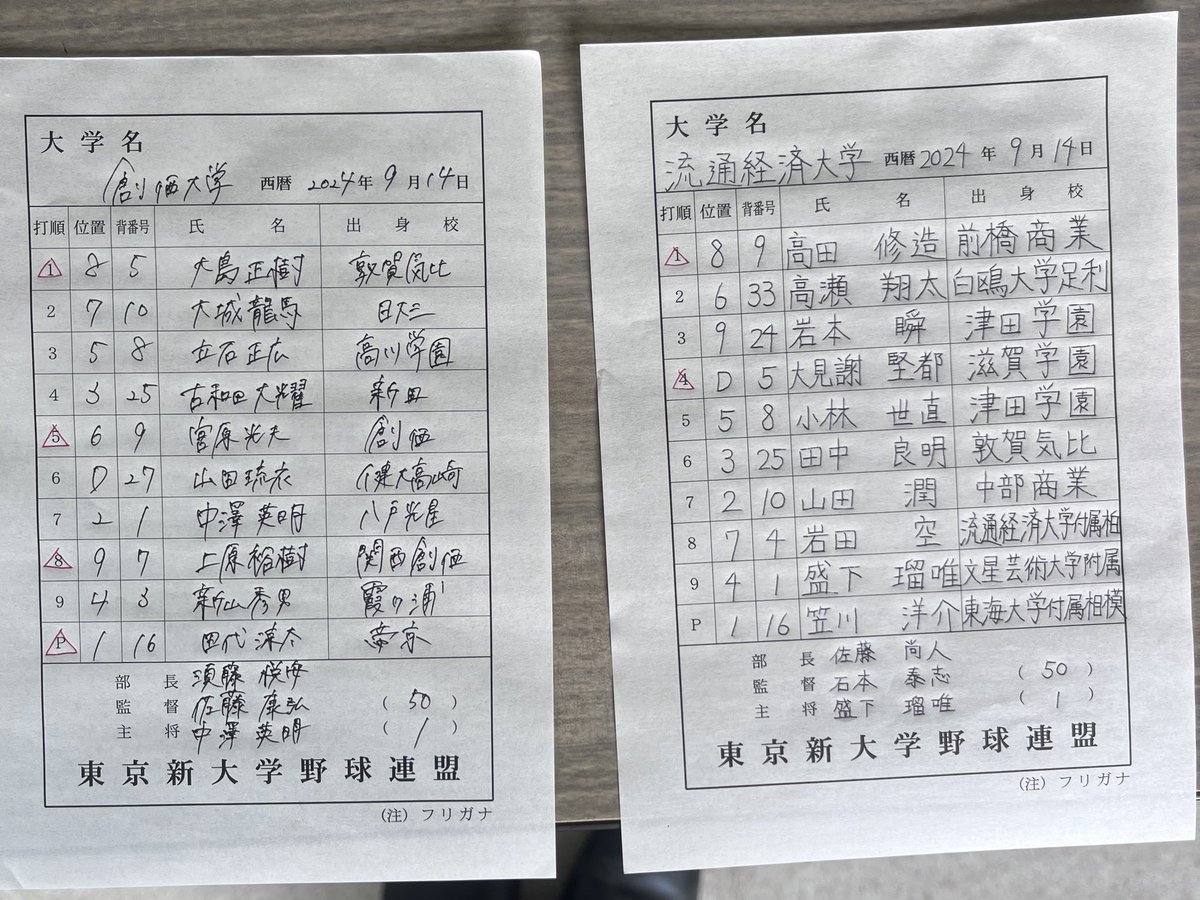 大学名
創価大学 西暦 2024年 9月14日
打順 位置 背番号 氏名 出身校
1 8 5 大島正樹 敦賀気比
2 7 10 大城龍馬 日大三
3 5 8 立石正広 高川学園
4 3 25 古和田大耀 新田
5 6 9 宮原光夫 創価
6 D 27 山田琉衣 健大高崎
7 2 1 中澤英明 八戸光星
8 9 7 上原裕樹 関西創価
9 4 3 新山秀男 霞ヶ浦
P 1 16 田代涼太 帝京
部長 須藤悦安
監督 佐藤康弘 (50)
主将 中澤英明 (1)
東京新大学野球連盟
(注)フリガナ
大学名
流通経済大学 西暦2024年9月14日
打順 位置 背番号 氏名 出身校
1 8 9 高田 修造 前橋商業
2 6 33 高瀬 翔太 白鴎大学足利
3 9 24 岩本 瞬 津田学園
4 D 5 大見謝 堅都 滋賀学園
5 5 8 小林 世直 津田学園
6 3 25 田中 良明 敦賀気比
7 2 10 山田 潤 中部商業
8 7 4 岩田 空 流通経済大学付属柏
9 4 1 盛下 瑠唯 文星芸術大学附属
P 1 16 笠川 洋介 東海大学付属相模
部長 佐藤 尚人
監督 石本 泰志 (50)
主将 盛下 瑠唯 (1)
東京新大学野球連盟
(注)フリガナ